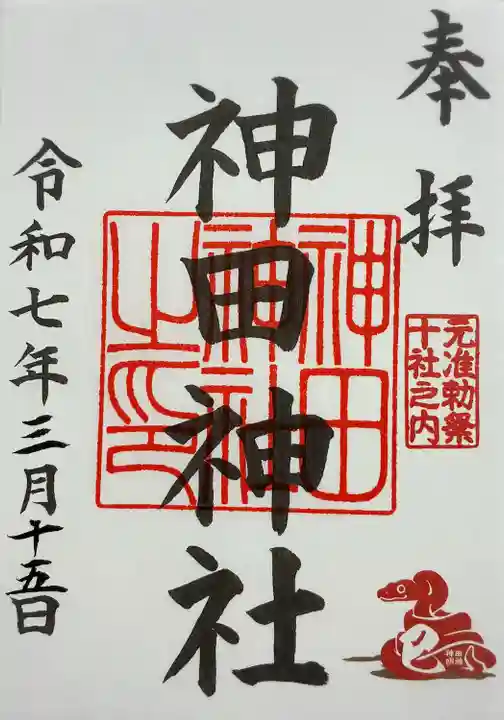 奉拝
元准勅祭
十社之内
神田神社
神田
神社
之印
令和七年三月十五日
巳